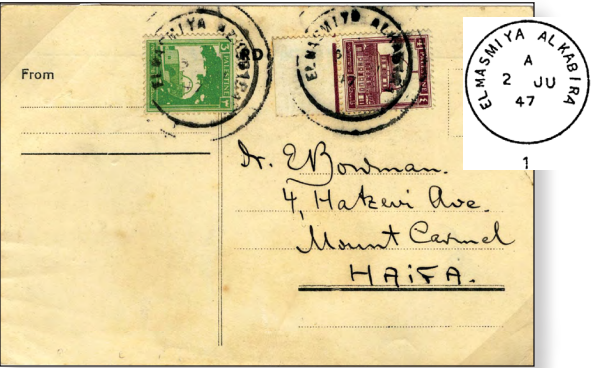 ELMASMIYA ALKABIRA
ELMASMIYA ALKABIRA
PALESTINE
PALESTINE
ELMASMIYA ALKABIRA
A
2 JU
47
1
From
Dr. E Bowman.
4, Hatzevi Ave.
Mount Carmel
HAIFA.